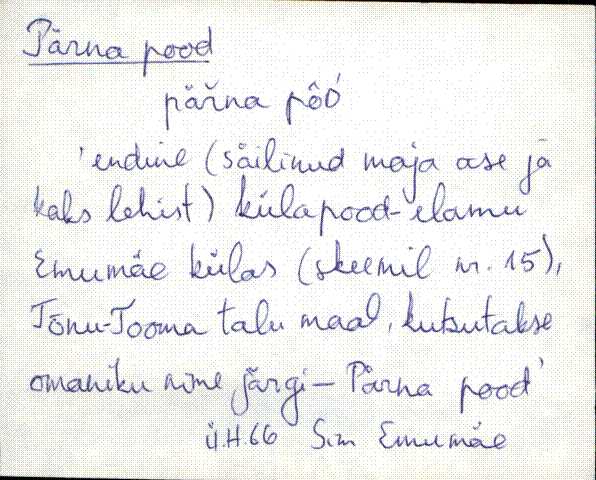 Pärna pood
pär̆na pôó
'endine (säilinud maja ase ja
kaks lehist) külapood-elamu
Emumäe külas (skeemil nr. 15),
Tõnu-Tooma talu maal, kutsutakse
omaniku nime järgi — Pärna pood'
Ü.H.66 Sim Emumäe